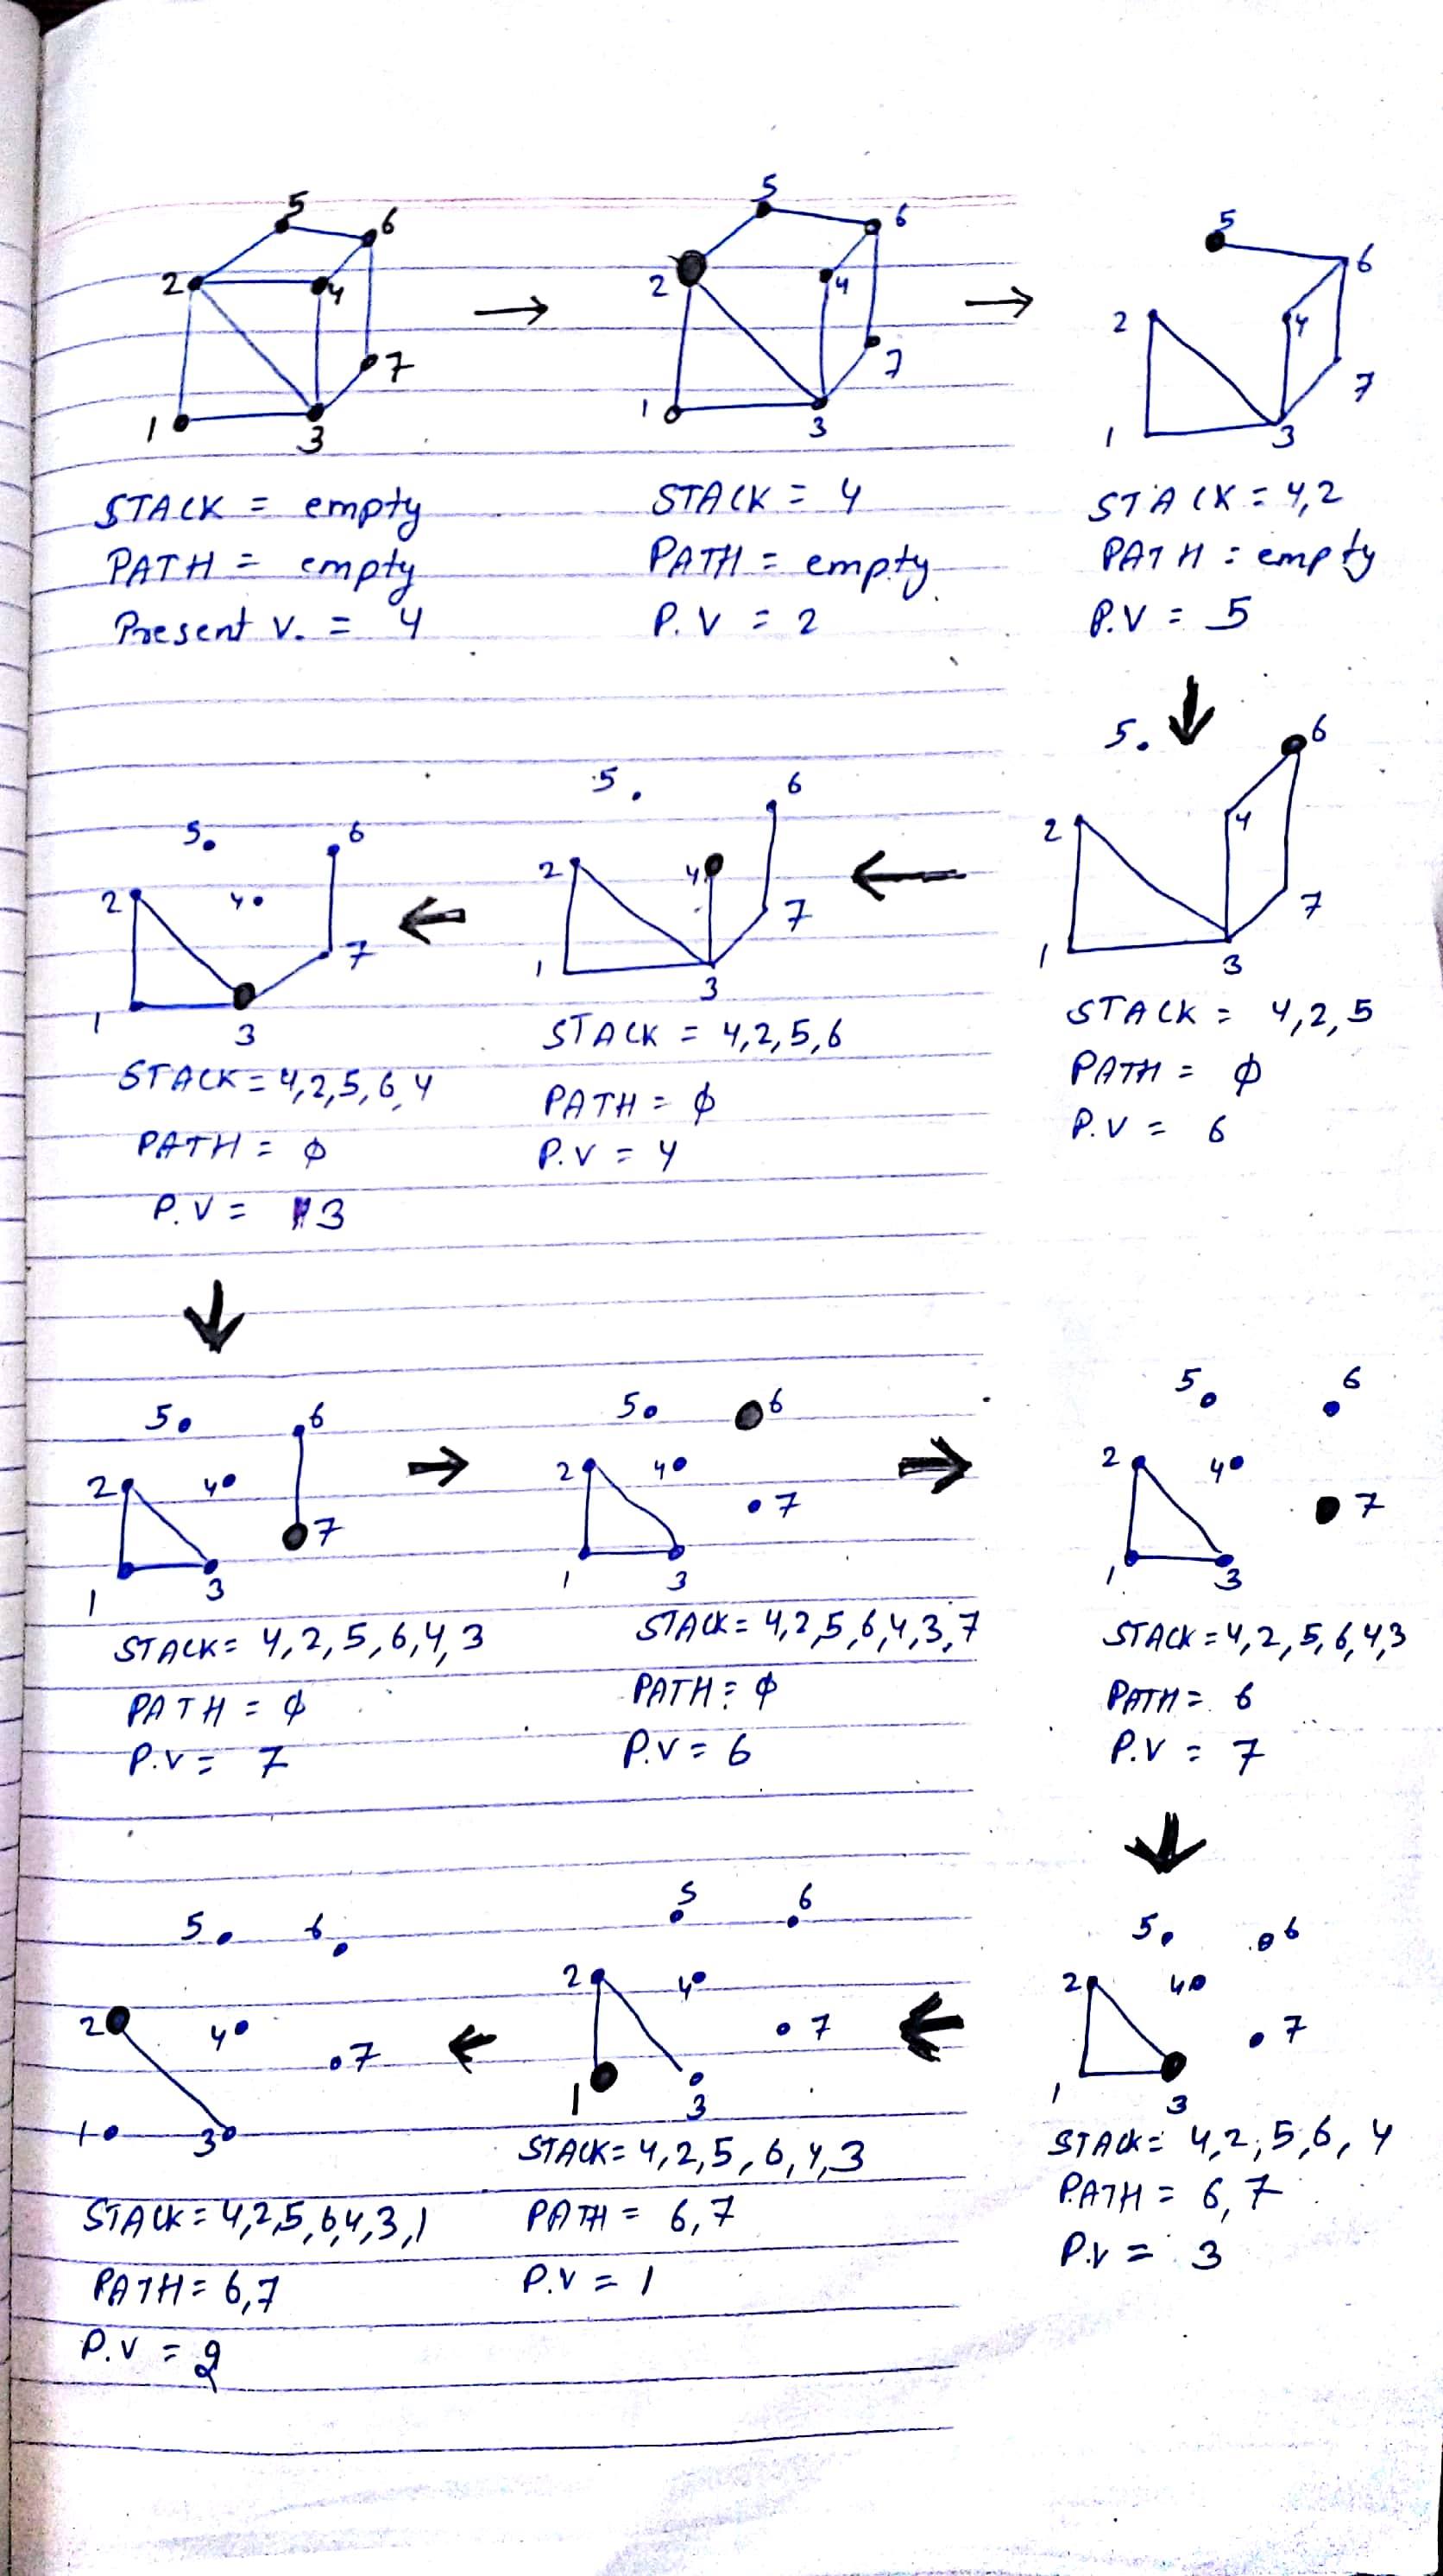 5
6
2
4
7
1
3
STACK = empty
PATH = empty
Present v. = 4
5
6
2
4
7
1
3
STACK = 4
PATH = empty
P.V = 2
5
6
2
4
7
1
3
STACK = 4,2
PATH = empty
P.V = 5
5
6
2
4
7
1
3
STACK = 4,2,5
PATH = ϕ
P.V = 6
5
6
2
4
7
1
3
STACK = 4,2,5,6
PATH = ϕ
P.V = 4
5
6
2
4
7
1
3
STACK = 4,2,5,6,4
PATH = ϕ
P.V = 3
5
6
2
4
7
1
3
STACK = 4,2,5,6,4,3
PATH = ϕ
P.V = 7
5
6
2
4
7
1
3
STACK = 4,2,5,6,4,3,7
PATH = ϕ
P.V = 6
5
6
2
4
7
1
3
STACK = 4,2,5,6,4,3
PATH = 6
P.V = 7
5
6
2
4
7
1
3
STACK = 4,2,5,6,4
PATH = 6,7
P.V = 3
5
6
2
4
7
1
3
STACK = 4,2,5,6,4,3
PATH = 6,7
P.V = 1
5
6
2
4
7
1
3
STACK = 4,2,5,6,4,3,1
PATH = 6,7
P.V = 2